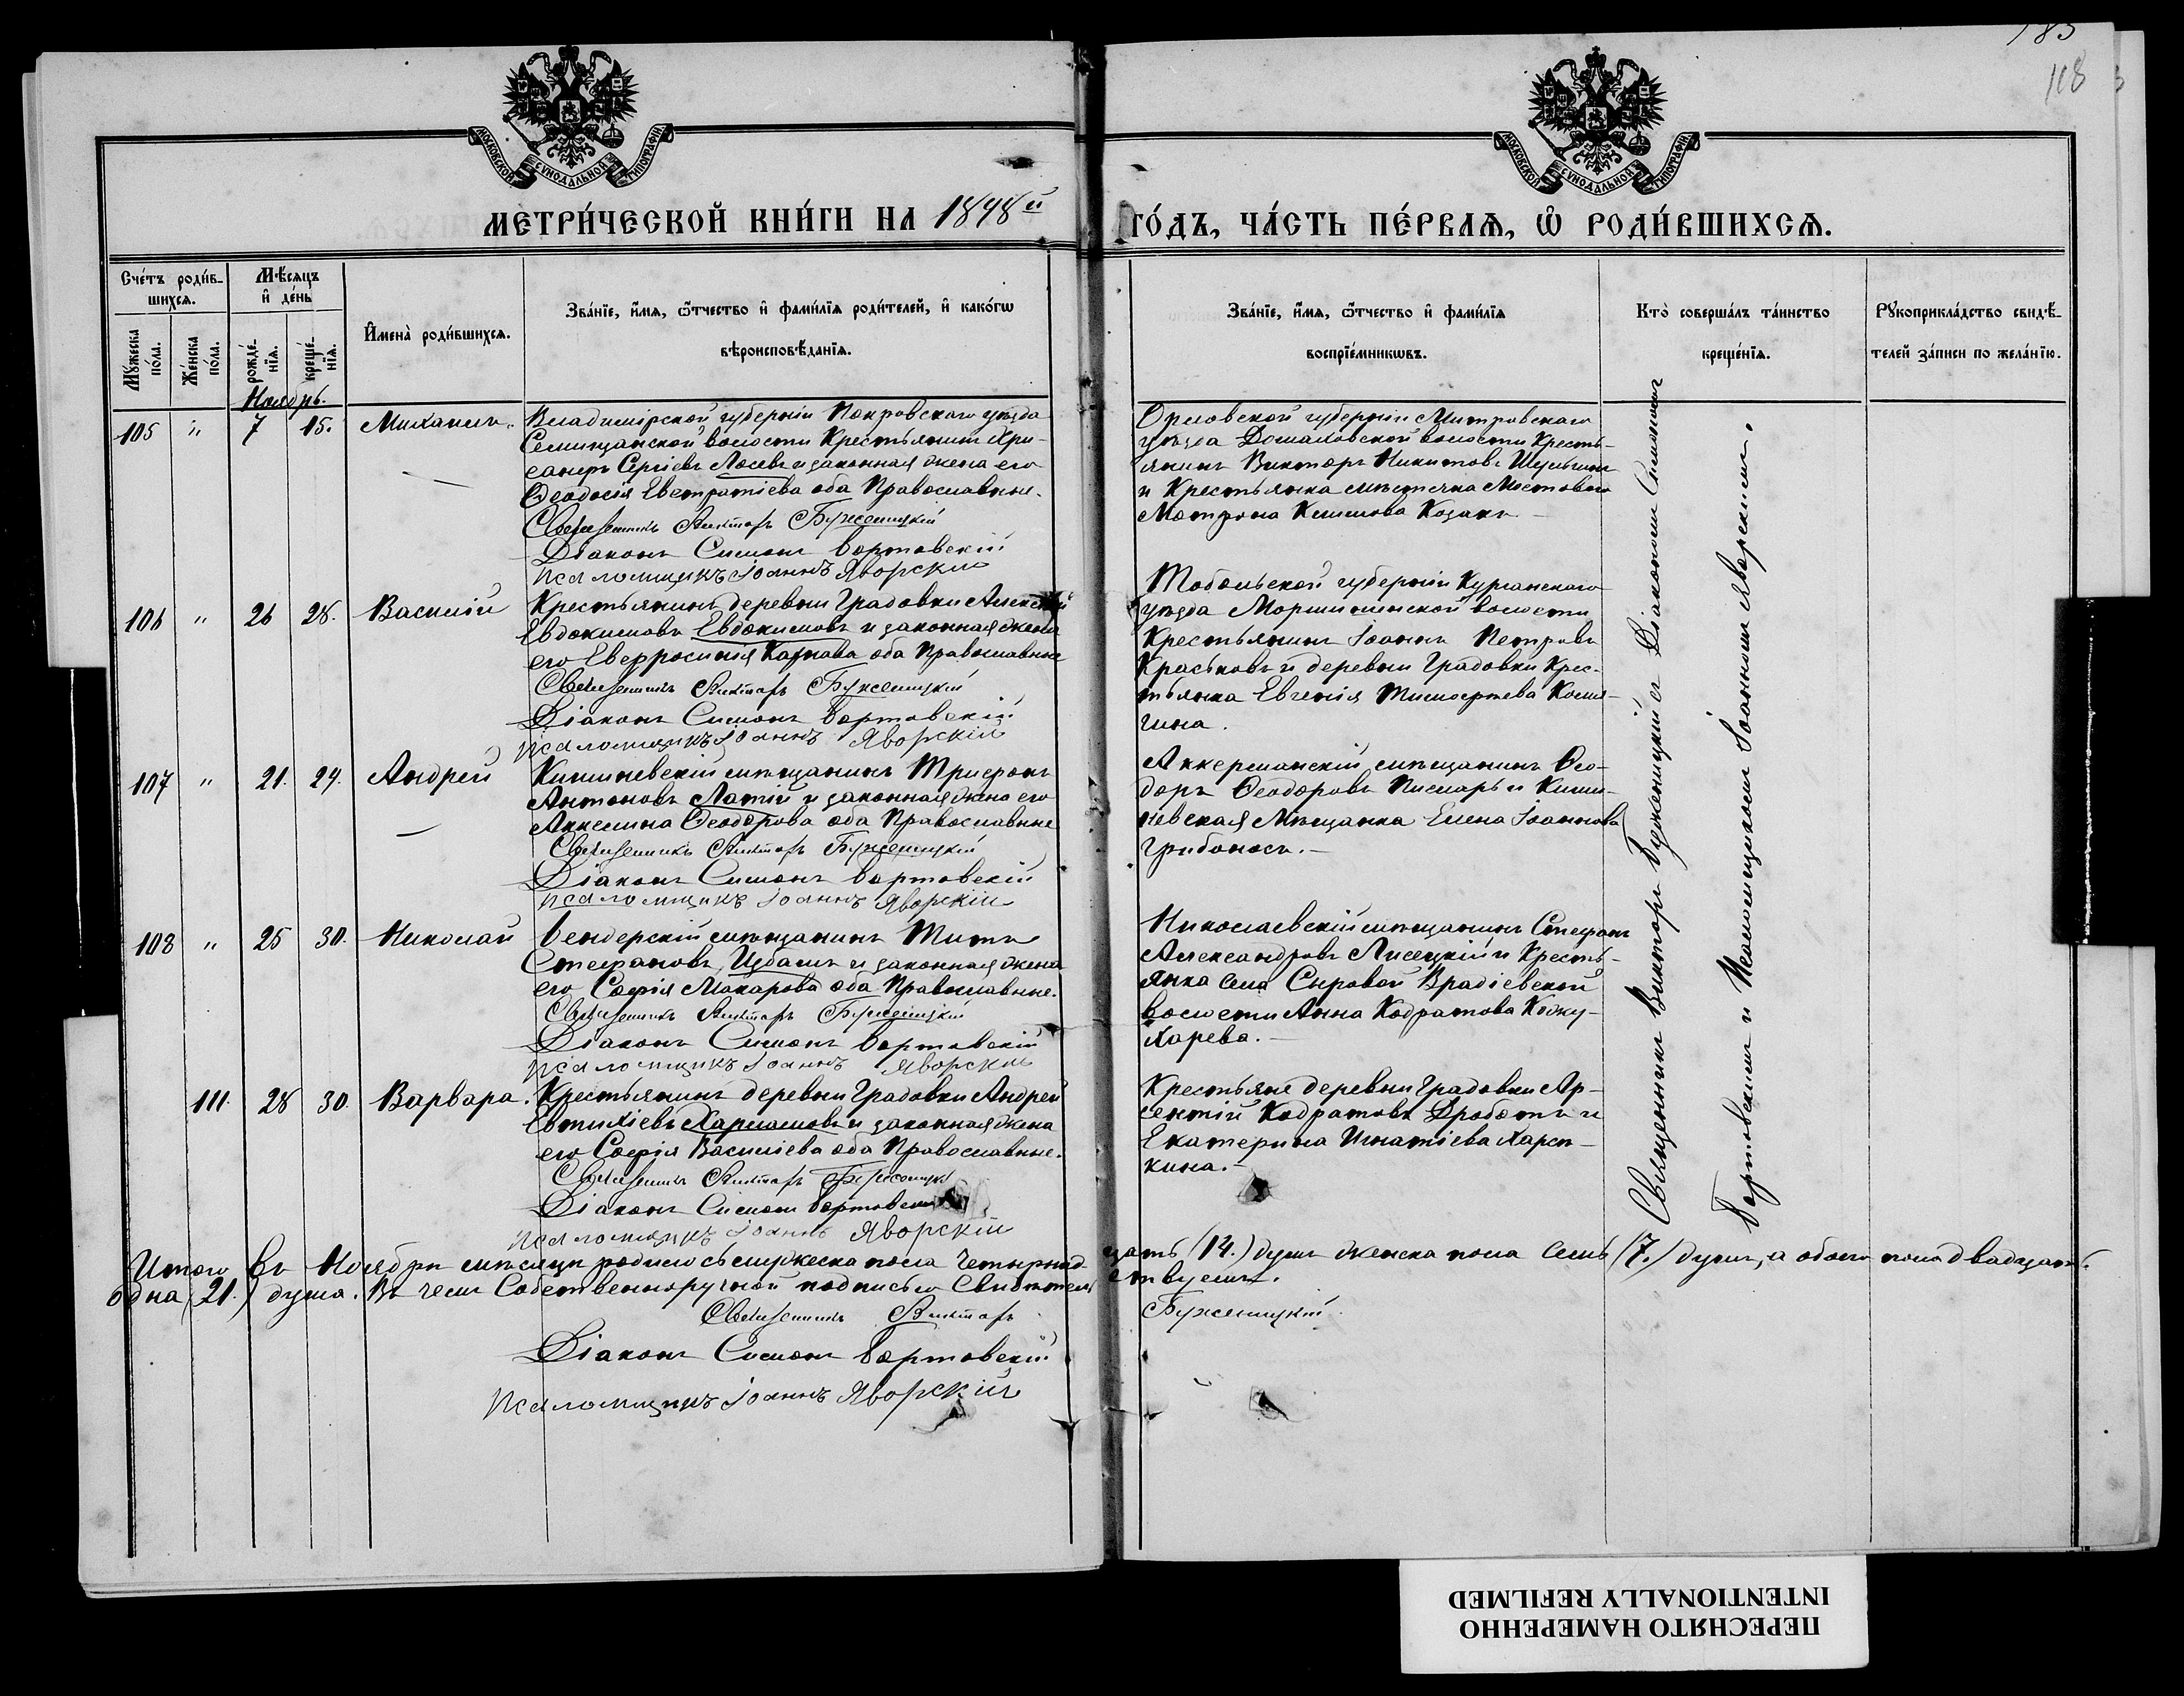 183
118
МОСКОВСКОЙ СѴНОДАЛЬНОЙ ТИПОГРАФІИ
МОСКОВСКОЙ СѴНОДАЛЬНОЙ ТИПОГРАФІИ
МЕТРИ́ЧЕСКОЙ КНИ́ГИ НА 1898й
ГО́ДЪ, ЧА́СТЬ ПЕ́РВАѦ, Ѡ҆ РОДИ́ВШИХСѦ.
Сче́тъ роди́в-
шихсѧ.
Мꙋ́жеска по́ла.
Же́нска по́ла.
Мѣ́сѧцъ
и҆ де́нь
рожде́-
нїѧ.
креще́-
нїѧ.
И҆мена̀ роди́вшихсѧ.
Зва́нїе, и҆́мѧ, ѻ҆́тчество и҆ фами́лїѧ роди́телей, и҆ како́гѡ
вѣроисповѣ́данїѧ.
Зва́нїе, и҆́мѧ, ѻ҆́тчество и҆ фами́лїѧ
воспрїе́мникѡвъ.
Кто̀ соверша́лъ та́инство
креще́нїѧ.
Рꙋкоприкла́дство свидѣ́-
телей за́писи по жела́нїю.
Ноябрь.
105 " 7 15. Михаилъ.
Владимірской губерніи Покровскаго уѣзда
волости Крестьянинъ Хри-
санфъ Сергіевъ Лосевъ и законная жена его
Ѳеодосія Евстратіева оба Православные.
Священникъ Викторъ Буженицкій
Діаконъ Симонъ Бортовскій
Псаломщикъ Іоаннъ Яворскій
Орловской губерніи Митровскаго
уѣзда Домаховской волости Кресть-
янинъ Викторъ Никитовъ Шульгинъ
и Крестьянка мѣстечка Мостоваго
Матрона Козакъ
106 " 26 28. Василій
Крестьянинъ деревни Градовки Алексѣй
Евдокимовъ Евдокимовъ и законная жена
его Евфросинія Карпова оба Православные
Священникъ Викторъ Буженицкій
Діаконъ Симонъ Бортовскій
Псаломщикъ Іоаннъ Яворскій
Тобольской губерніи Курганскаго
уѣзда Моршихинской волости
Крестьянинъ Іоаннъ Петровъ
Краськовъ и деревни Градовки Крес-
тьянка Евгенія Тимофеева Коша-
гина.
107 " 21. 29. Андрей
Кишиневскій мѣщанинъ Трифонъ
Антоновъ Латій и законная жена его
Акилина Ѳеодорова оба Православные
Священникъ Викторъ Буженицкій
Діаконъ Симонъ Бортовскій
Псаломщикъ Іоаннъ Яворскій
Аккерманскій мѣщанинъ Ѳео-
доръ Ѳеодоровъ Писларь и Киши-
невская Мѣщанка Елена Іоаннова
Грибоносъ.
108 " 25 30. Николай
Бендерскій мѣщанинъ Титъ
Стефановъ Цубашъ и законная жена
его Софія Макарова оба Православные.
Священникъ Викторъ Буженицкій
Діаконъ Симонъ Бортовскій
Псаломщикъ Іоаннъ Яворскій
Николаевскій мѣщанинъ Стефанъ
Александровъ Лисецкій и Кресть-
янка села Сыровой Врадіевской
волости Анна Кодратова Кожу-
харева.
111. 28 30. Варвара.
Крестьянинъ деревни Градовки Андрей
Евтихіевъ Харламовъ и законная жена
его Софія Василіева оба Православные.
Священникъ Викторъ Буженицкій
Діаконъ Симонъ Бортовскій
Псаломщикъ Іоаннъ Яворскій
Крестьяне деревни Градовки Ар-
сентій Кодратовъ Дроботъ и
Екатерина Игнатіева Харсе-
кина.
Священникъ Викторъ Буженицкій съ Діакономъ Симономъ
Бортовскимъ и Псаломщикомъ Іоанномъ Яворскимъ.
Итого въ Ноябрѣ мѣсяцѣ родилось мужеска пола Четырнад-
цать (14.) душъ женска пола семь (7.) душъ, а обоего пола двадцать
одна (21.) душа. Въ чемъ Собственноручной подписью Свидѣтель-
ствуемъ.
Священникъ Викторъ Буженицкій
Діаконъ Симонъ Бортовскій
Псаломщикъ Іоаннъ Яворскій
ПЕРЕСНЯТО НАМЕРЕННО
INTENTIONALLY REFILMED